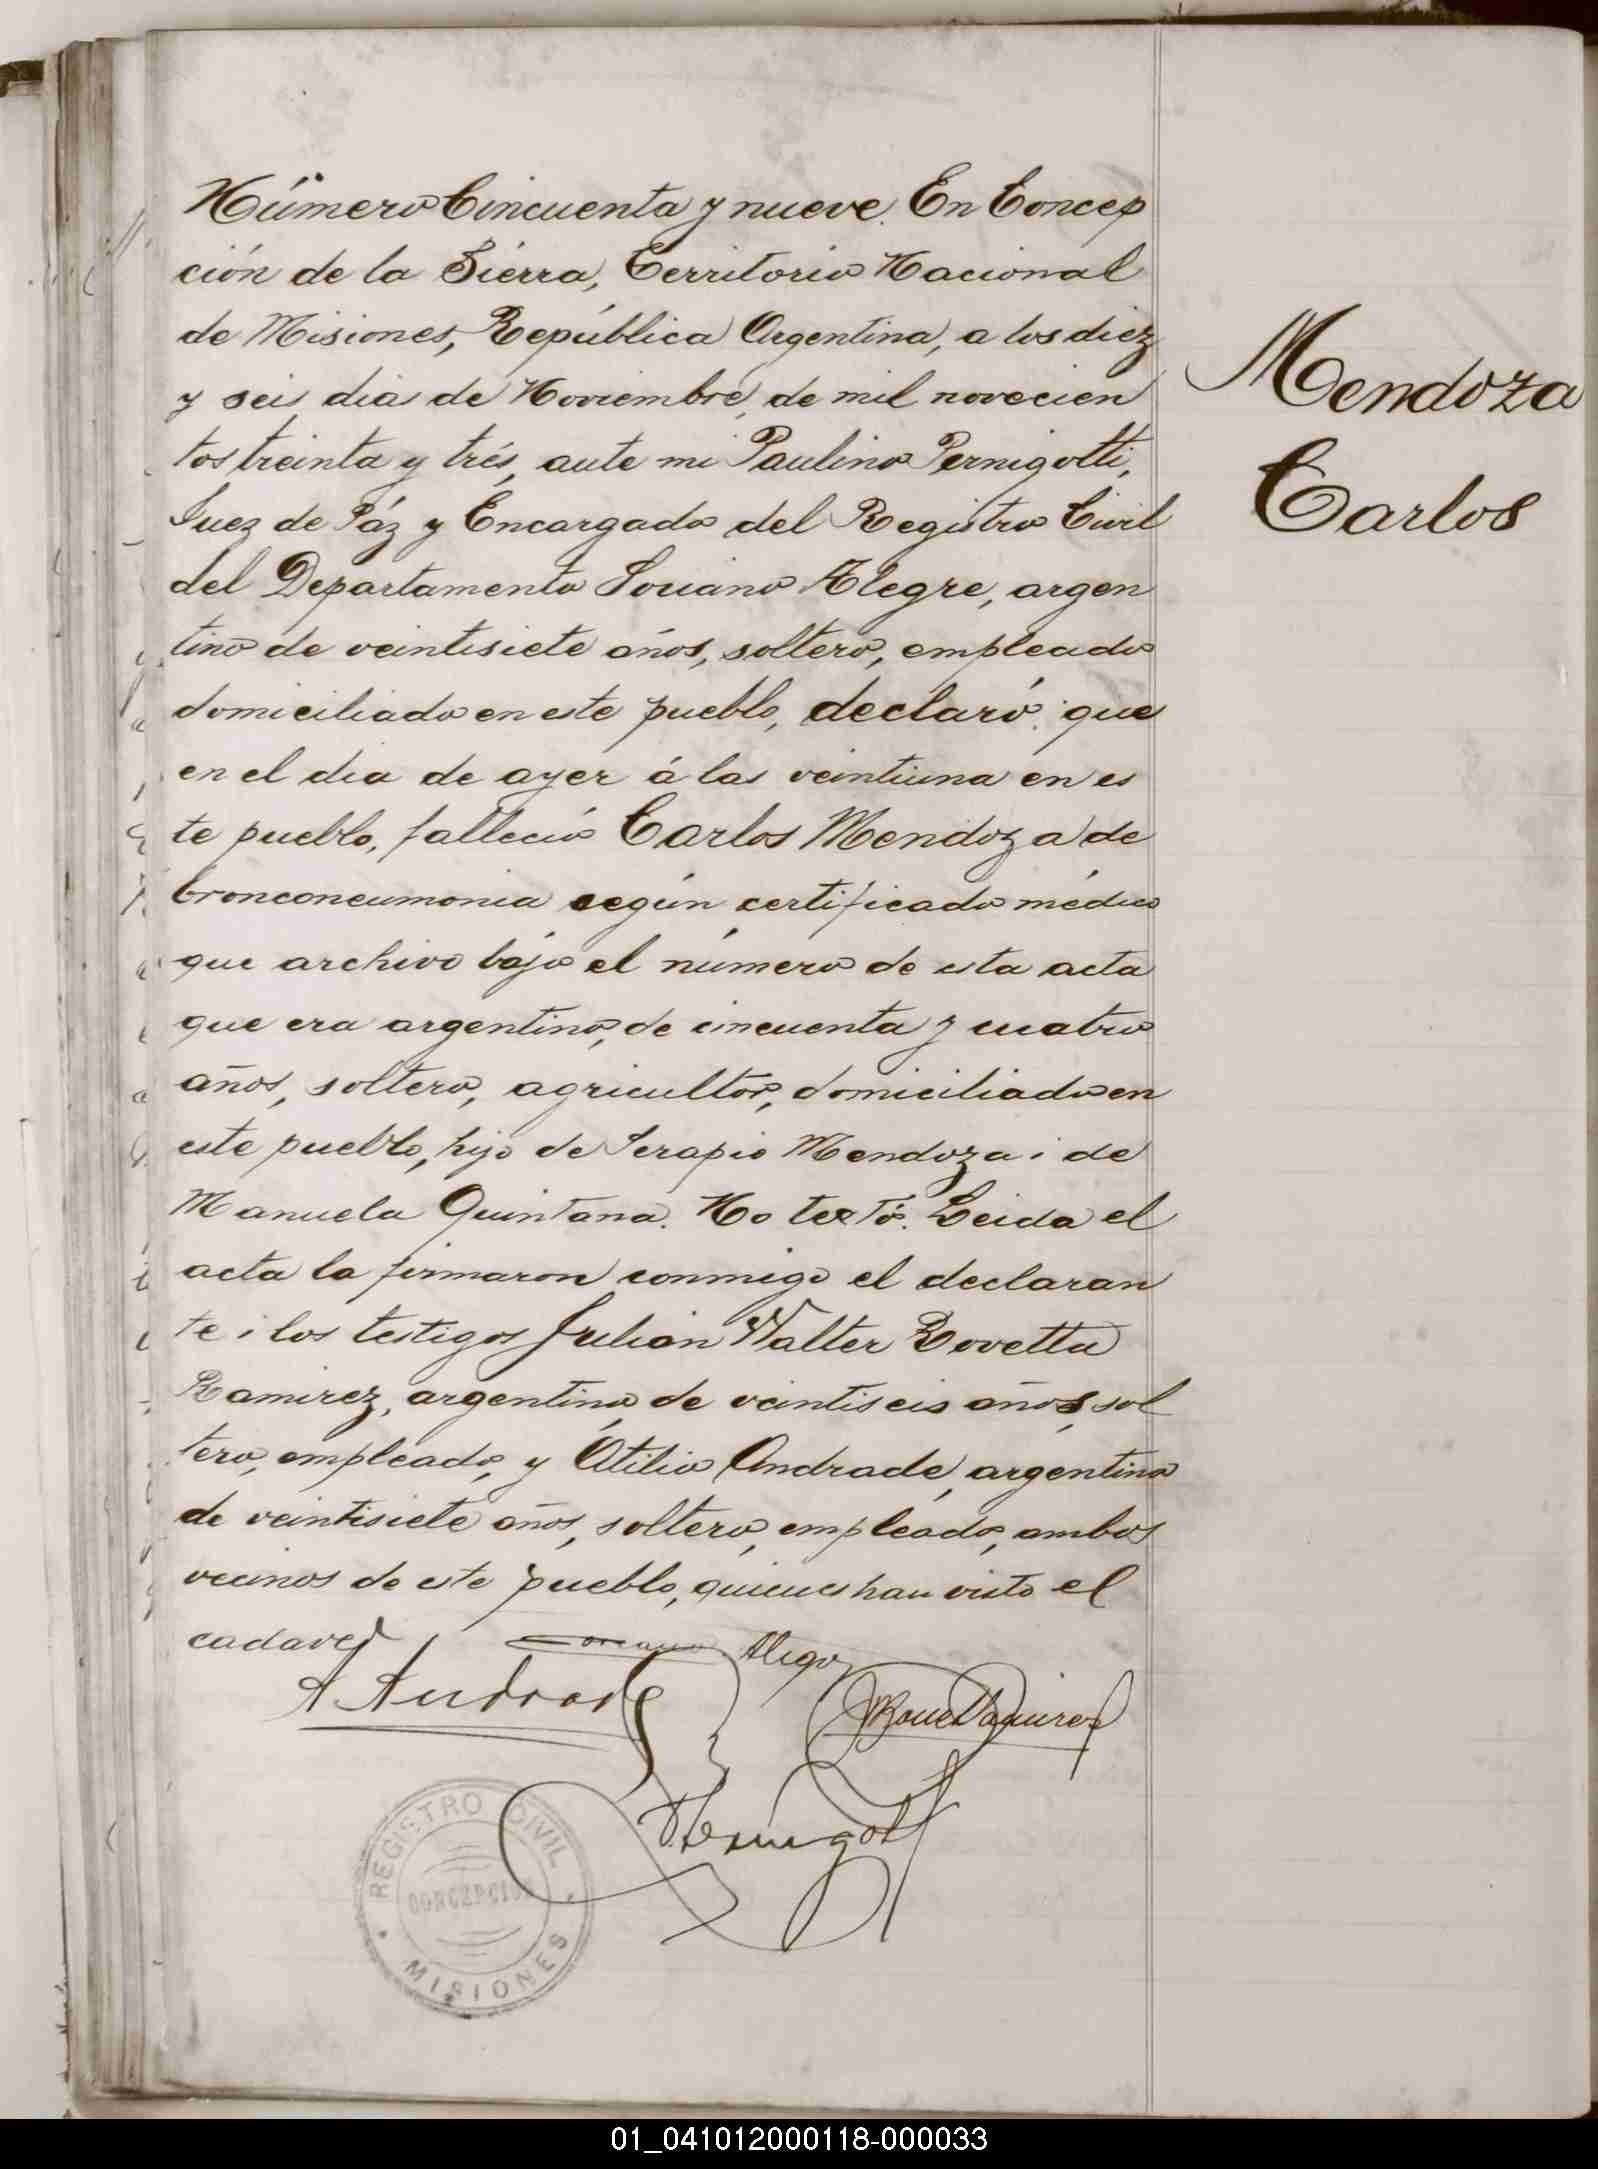 Número Cincuenta y nueve. En Concep
ción de la Sierra, Territorio Nacional
de Misiones, República Argentina, a los diez
y seis dias de Noviembre, de mil novecien
tos treinta y trés, ante mi Paulino Pernigotti,
Juez de Páz y Encargado del Registro Civil
del Departamento Soriano Alegre, argen
tino de veintisiete años, soltero, empleado
domiciliado en este pueblo, declaró: que
en el dia de ayer á las veintiuna en es
te pueblo, falleció Carlos Mendoza de
bronconeumonia según certificado médico
que archivo bájo el número de esta acta
que era argentino, de cincuenta y cuatro
años, soltero, agricultor, domiciliado en
este pueblo, hijo de Serapio Mendoza i de
Manuela Quintana. No textó. Leida el
acta la firmaron conmigo el declaran
te i los testigos Julian Walter Rovetta
Ramirez, argentino de veintiseis años, sol
tero, empleado, y Atilio Andrade, argentino
de veintisiete años, soltero, empleado, ambos
vecinos de este pueblo, quienes han visto el
cadaver
A Andrade
Mendoza
Carlos
REGISTRO CIVIL
MISIONES
01_041012000118-000033